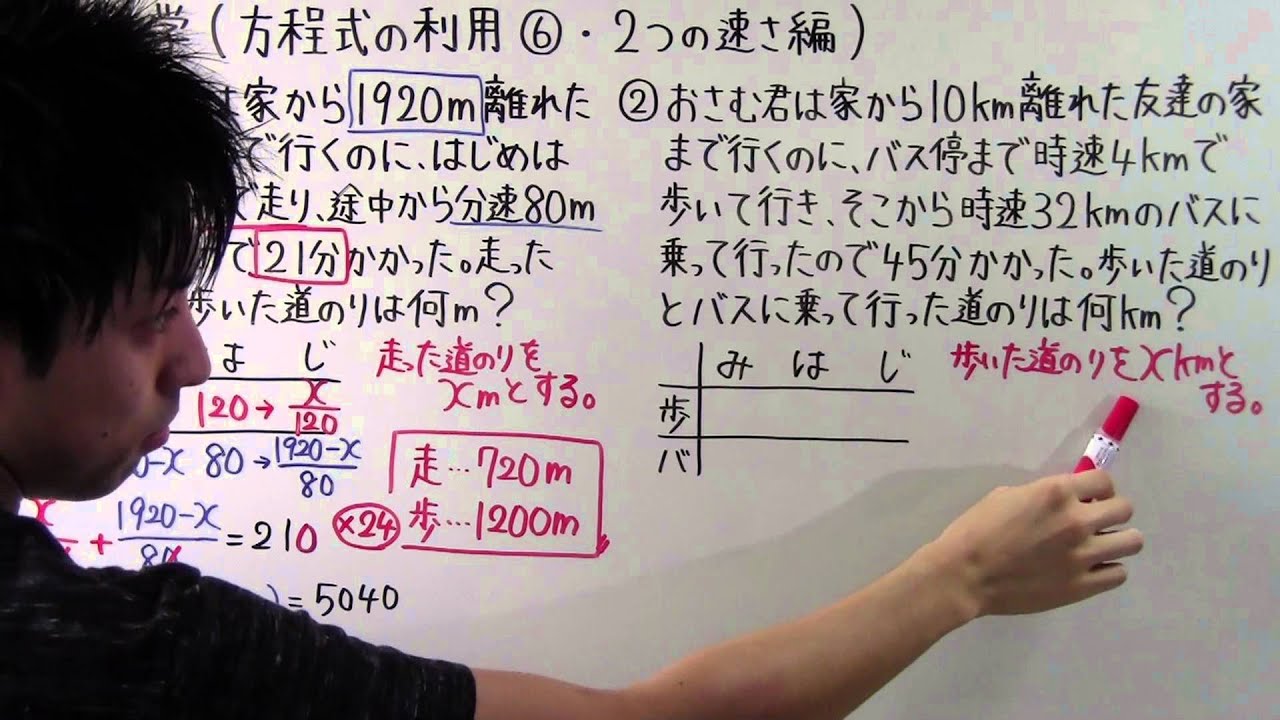 (方程式の利用⑥・2つの速さ編)
家から1920m離れた
行くのに、はじめは
走り、途中から分速80m
で21分かかった。走った
歩いた道のりは何m?
よ じ
120→x/120
-x 80→1920-x/80
走った道のりを
xmとする。
+1920-x/80=210 ×24
=5040
走…720m
歩…1200m
②おさむ君は家から10km離れた友達の家
まで行くのに、バス停まで時速4kmで
歩いて行き、そこから時速32kmのバスに
乗って行ったので45分かかった。歩いた道のり
とバスに乗って行った道のりは何km?
み は じ
歩
バ
歩いた道のりをxkmと
する。